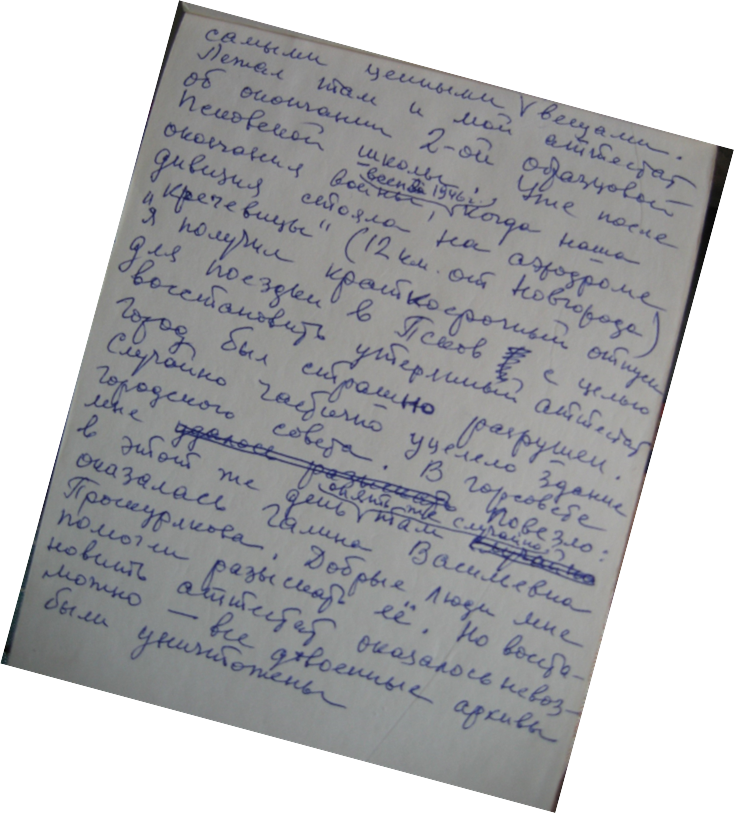 самыми ценными вещами.
Лежал там и мой аттестат
об окончании 2-ой образцовой
Псковской школы. Уже после
окончания войны, весной 1946 г., когда наша
дивизия стояла на аэродроме
"Кречевицы" (12 км. от Новгорода)
я получил краткосрочный отпуск
для поездки в Псков с целью
восстановить утерянный аттестат
Город был страшно разрушен.
Случайно частично уцелело здание
городского совета. В горсовете
мне удалось разыскать повезло:
в этот же день опять же случайно там случайно
оказалась Галина Васильевна
Проскурякова. Добрые люди мне
помогли разыскать её. Но восста-
новить аттестат оказалось невоз-
можно — все довоенные архивы
были уничтожены